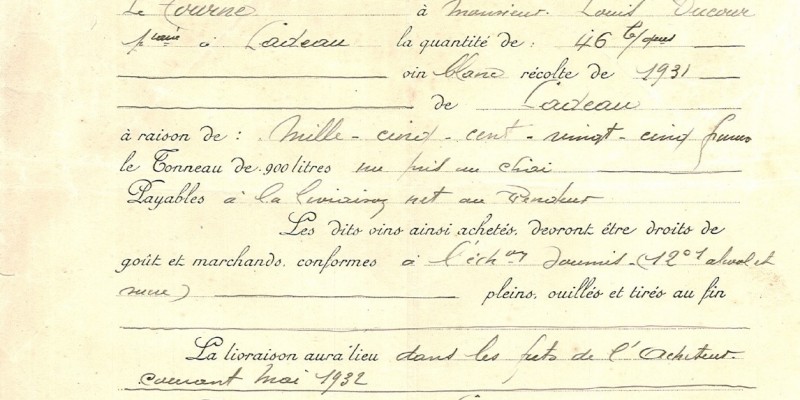 Le Tourne à Monsieur Louis Ducour
à Cadeau la quantité de : 46
vin blanc récolte de 1931
de Cadeau
à raison de : Mille - cinq - cent - vingt - cinq francs
le Tonneau de 900 litres nu pris au chai
Payables à la livraison net au Vendeur
Les dits vins ainsi achetés, devront être droits de
goût et marchands, conformes à l'éch.on soumis (12°1 alcool et
sucre) pleins, ouillés et tirés au fin
La livraison aura lieu dans les futs de l'acheteur
courant Mai 1932